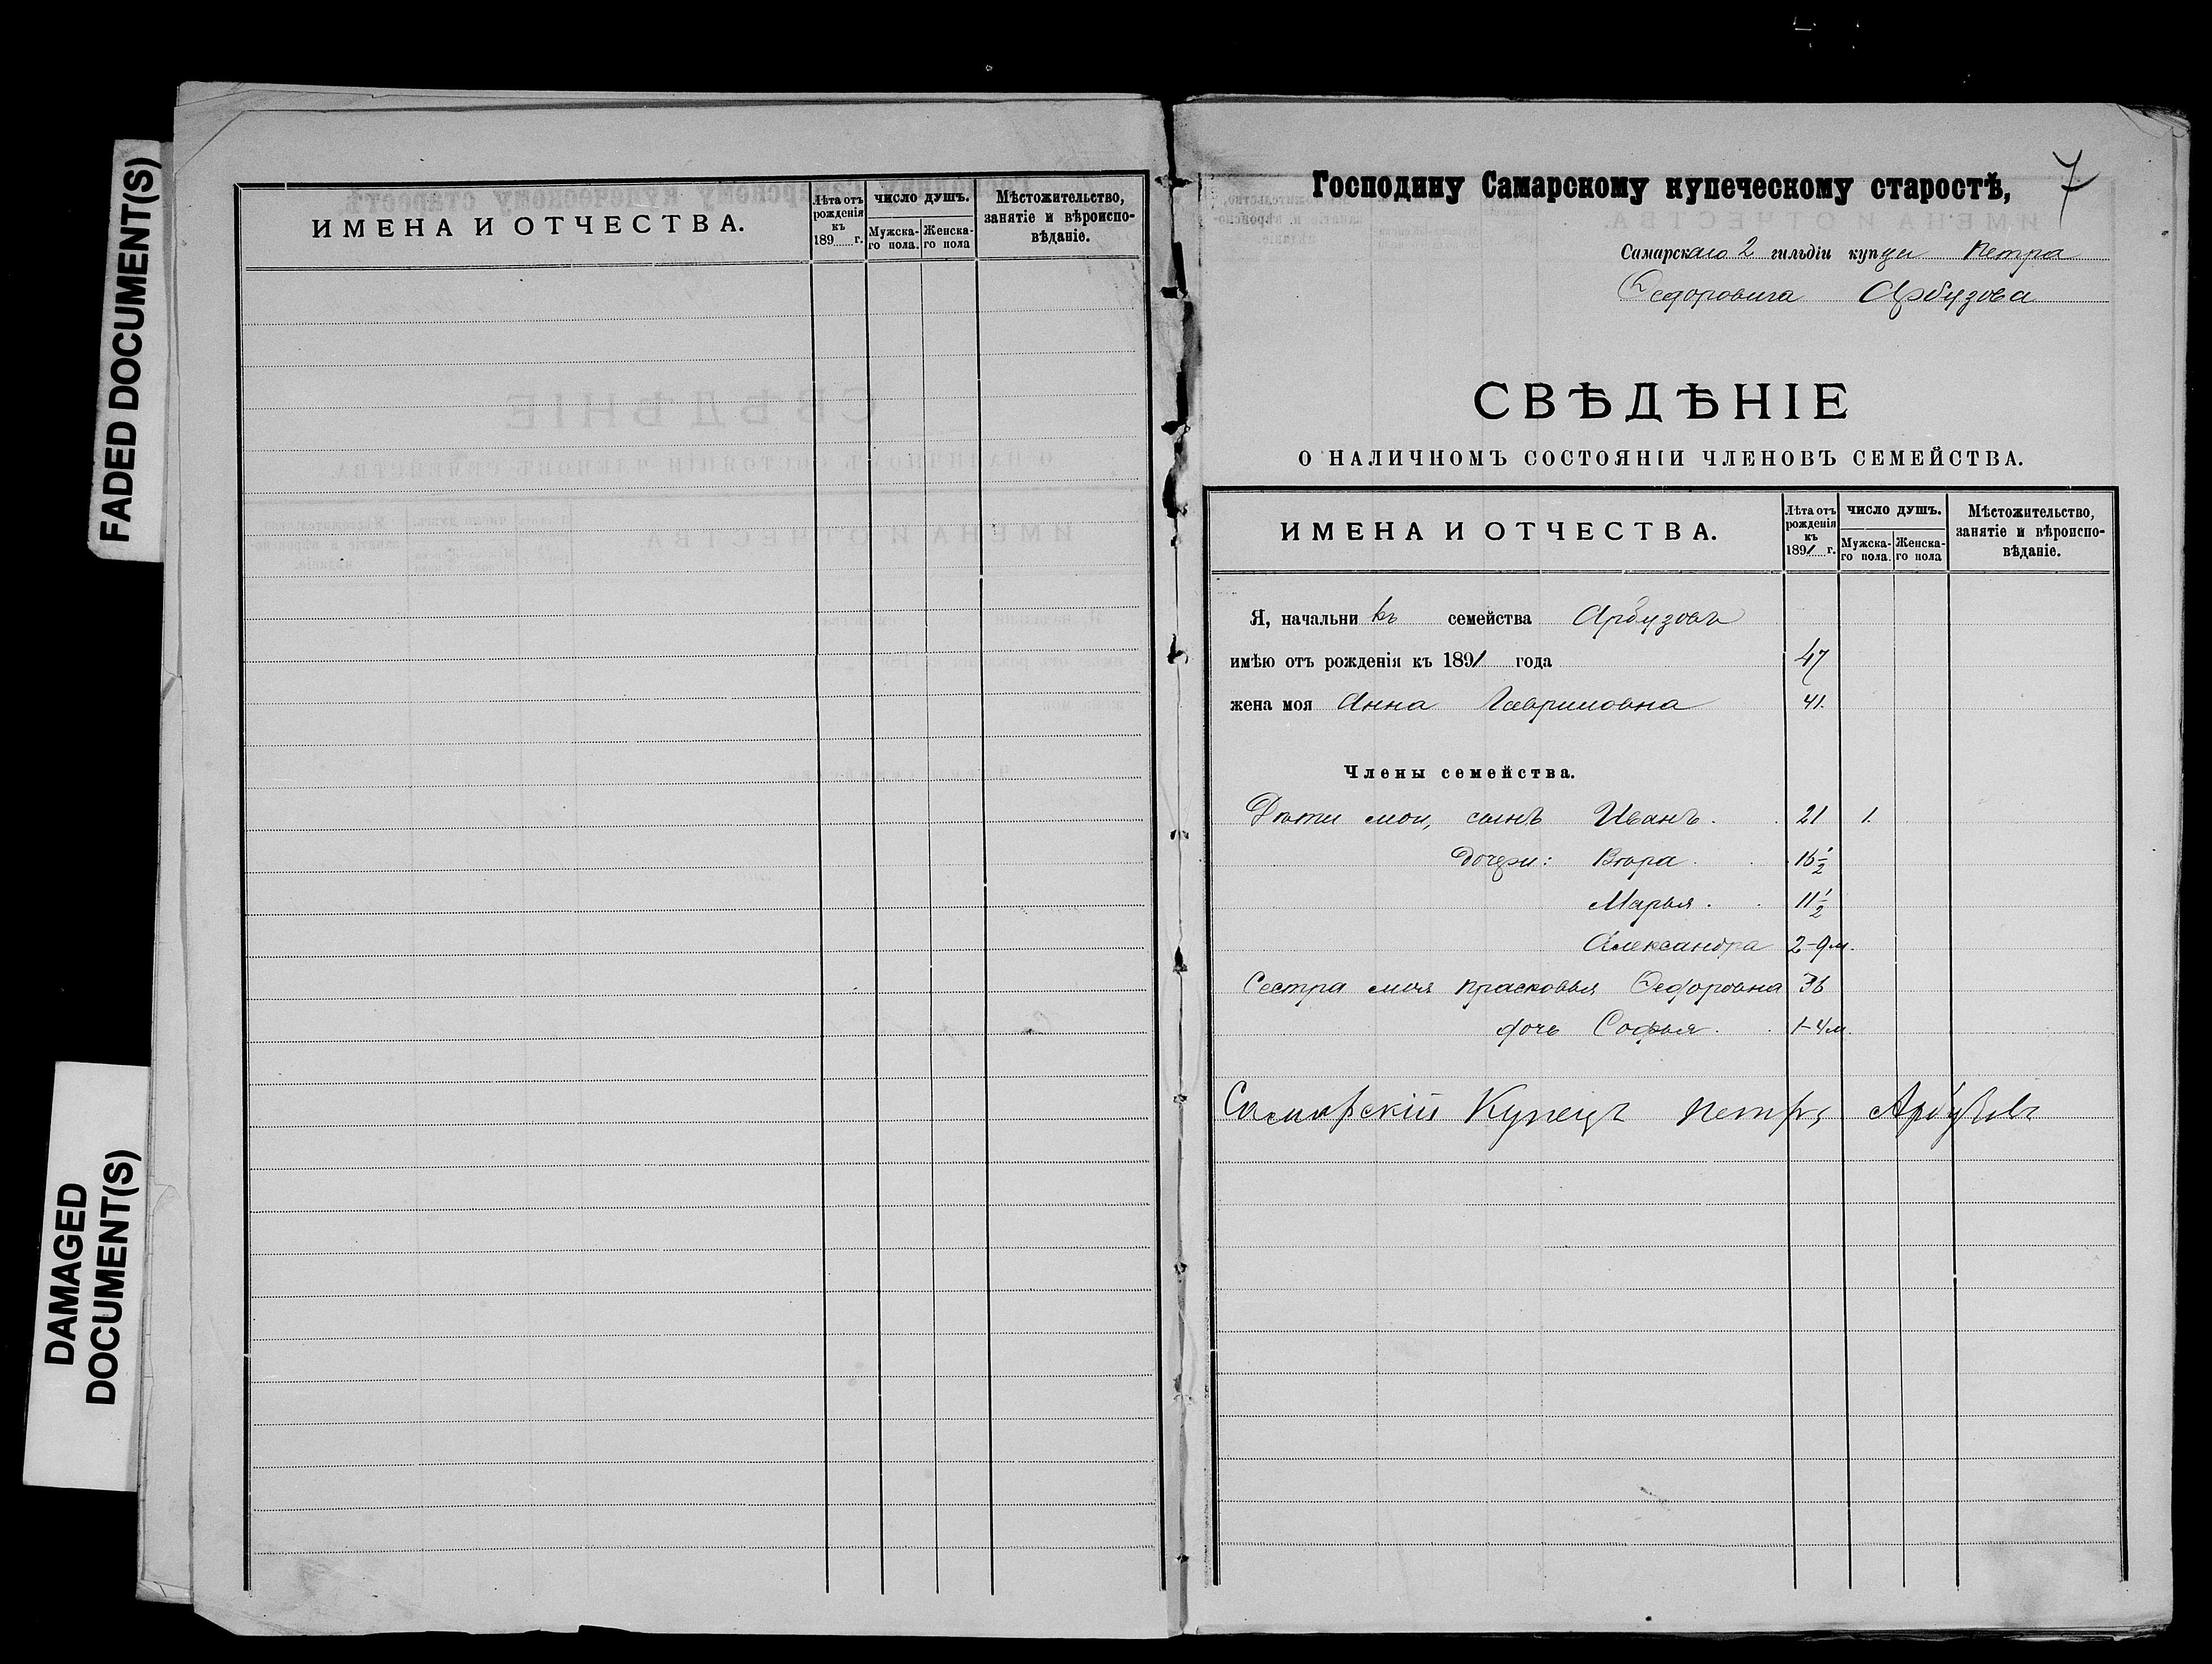 FADED DOCUMENT(S)
DAMAGED
DOCUMENT(S)
ИМЕНА И ОТЧЕСТВА.
Лѣта отъ
рожденія
къ
189 г.
ЧИСЛО ДУШЪ.
Мужска-
го пола.
Женска-
го пола
Мѣстожительство,
занятіе и вѣроиспо-
вѣданіе.
7
Господину Самарскому купеческому старостѣ,
Самарскаго 2 гильдіи купца Петра
Федоровича Арбузова
СВѢДѢНІЕ
О НАЛИЧНОМЪ СОСТОЯНІИ ЧЛЕНОВЪ СЕМЕЙСТВА.
ИМЕНА И ОТЧЕСТВА.
Лѣта отъ
рожденія
къ
1891 г.
ЧИСЛО ДУШЪ.
Мужска-
го пола.
Женска-
го пола
Мѣстожительство,
занятіе и вѣроиспо-
вѣданіе.
Я, начальникъ семейства Арбузовъ
имѣю отъ рожденія къ 1891 года 47
жена моя Анна Гавриловна 41.
Члены семейства.
Дѣти мои, сынъ Иванъ. 21 1.
дочери: Вѣра 16 1/2
Марья. 11 1/2
Александра 2-9 м.
Сестра моя Прасковья Федоровна 36
дочь Софья. 1-4 м.
Самарскій Купецъ Петръ Арбузовъ